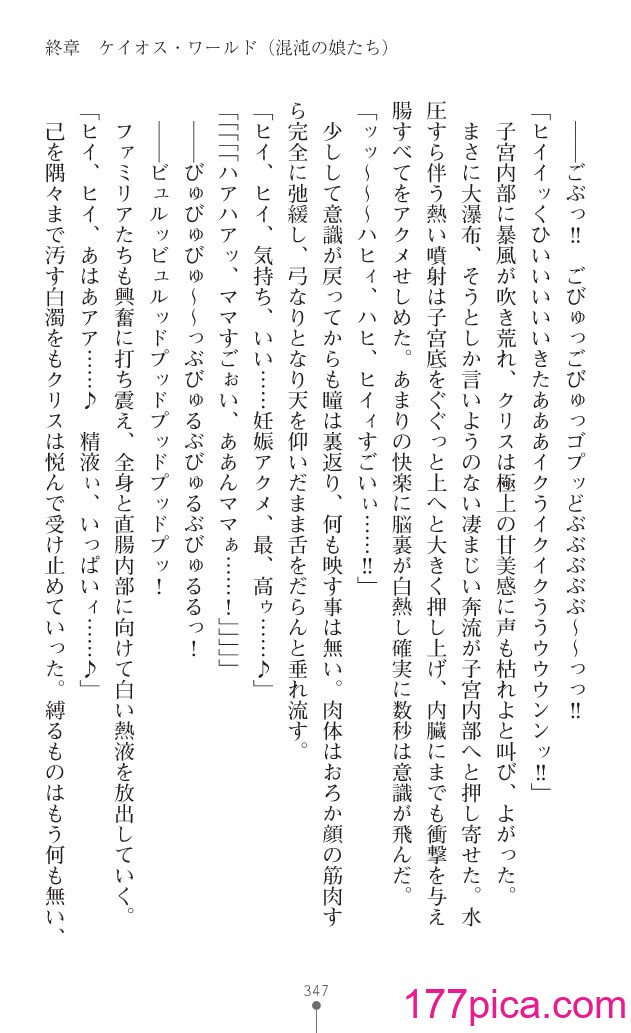 終章　ケイオス・ワールド（混沌の娘たち）
――ごぶっ‼　ごびゅっごびゅっゴプッどぶぶぶぶ～～っっ‼
「ヒイイッくひいいいいいきたあああイクうイクイクううウウウンンッ‼」
子宮内部に暴風が吹き荒れ、クリスは極上の甘美感に声も枯れよと叫び、よがった。
まさに大瀑布、そうとしか言いようのない凄まじい奔流が子宮内部へと押し寄せた。水
圧すら伴う熱い噴射は子宮底をぐぐっと上へと大きく押し上げ、内臓にまでも衝撃を与え
腸すべてをアクメせしめた。あまりの快楽に脳裏が白熱し確実に数秒は意識が飛んだ。
「ッッ～～～ハヒィ、ハヒ、ヒイィすごいぃ……‼」
少しして意識が戻ってからも瞳は裏返り、何も映す事は無い。肉体はおろか顔の筋肉す
ら完全に弛緩し、弓なりとなり天を仰いだまま舌をだらんと垂れ流す。
「ヒイ、ヒイ、気持ち、いい……妊娠アクメ、最、高ゥ……♪」
「「「「ハアハアッ、ママすごぉい、ああんママぁ……！」」」」
――びゅびゅびゅ～～っぶびゅるぶびゅるぶびゅるるっ！
――ビュルッビュルッドプッドプッドプッドプッ！
ファミリアたちも興奮に打ち震え、全身と直腸内部に向けて白い熱液を放出していく。
「ヒイ、ヒイ、あはあアア……♪　精液ぃ、いっぱいィ……♪」
己を隅々まで汚す白濁をもクリスは悦んで受け止めていった。縛るものはもう何も無い、
347
177pica.com